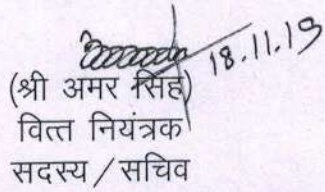 18.11.19
(श्री अमर सिंह)
वित्त नियंत्रक
सदस्य / सचिव